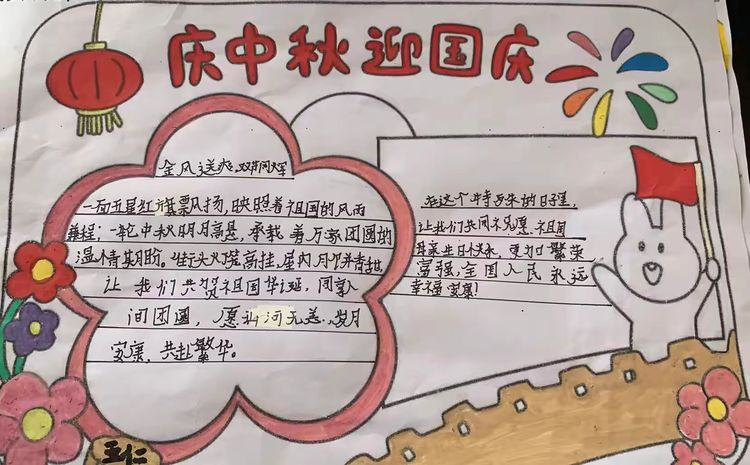 庆中秋迎国庆
金风送爽，双节同辉
一面五星红旗飘扬，映照着祖国的风雨
兼程；一轮中秋明月高悬，承载着万家团圆的
温情期盼。街头灯笼高挂，屋内月饼香甜
让我们共贺祖国华诞，同享人
间团圆，愿山河无恙，岁月
安康，共赴繁华。
在这个特殊的日子里，
让我们共同祝愿祖国
母亲生日快乐，更加繁荣
富强，全国人民永远
幸福安康！
五仁